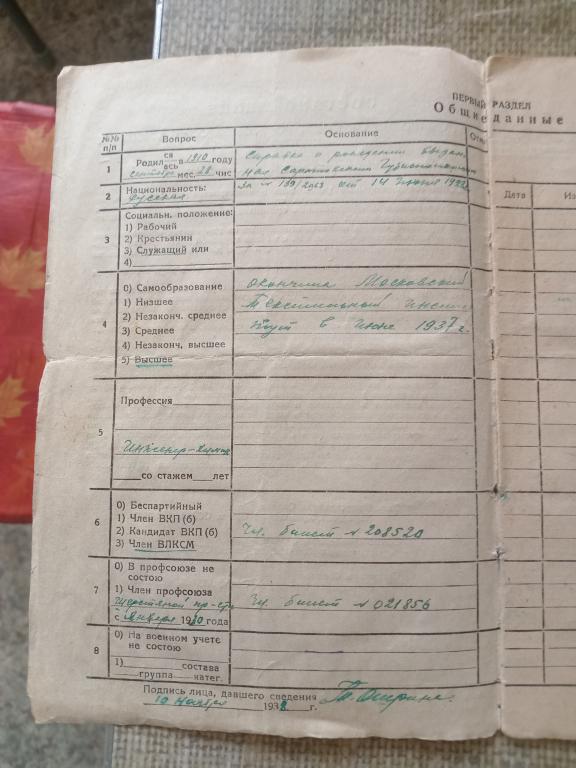 ПЕРВЫЙ РАЗДЕЛ
Общие данные
№№ п/п Вопрос Основание
Дата Из
1 Родил ся ась в 1910 году
сентябре мес. 28 чис
Справка о рождении выдан
ная Саратовским
за № 139/2963 от 14 июня 1922
2 Национальность:
русская
3 Социальн. положение:
1) Рабочий
2) Крестьянин
3) Служащий или
4)
4 0) Самообразование
1) Низшее
2) Незаконч. среднее
3) Среднее
4) Незаконч. высшее
5) Высшее
окончила Московский
Текстильный инсти
тут в июне 1937 г.
5 Профессия
Инженер-химик
со стажем лет
6 0) Беспартийный
1) Член ВКП (б)
2) Кандидат ВКП (б)
3) Член ВЛКСМ
Чл. билет № 208520
7 0) В профсоюзе не
состою
1) Член профсоюза
Шерстяной пр-сти
с января 1930 года
Чл. билет № 021856
8 0) На военном учете
не состою
1) состава
группа катег.
Подпись лица, давшего сведения
10 ноября 1938 г.